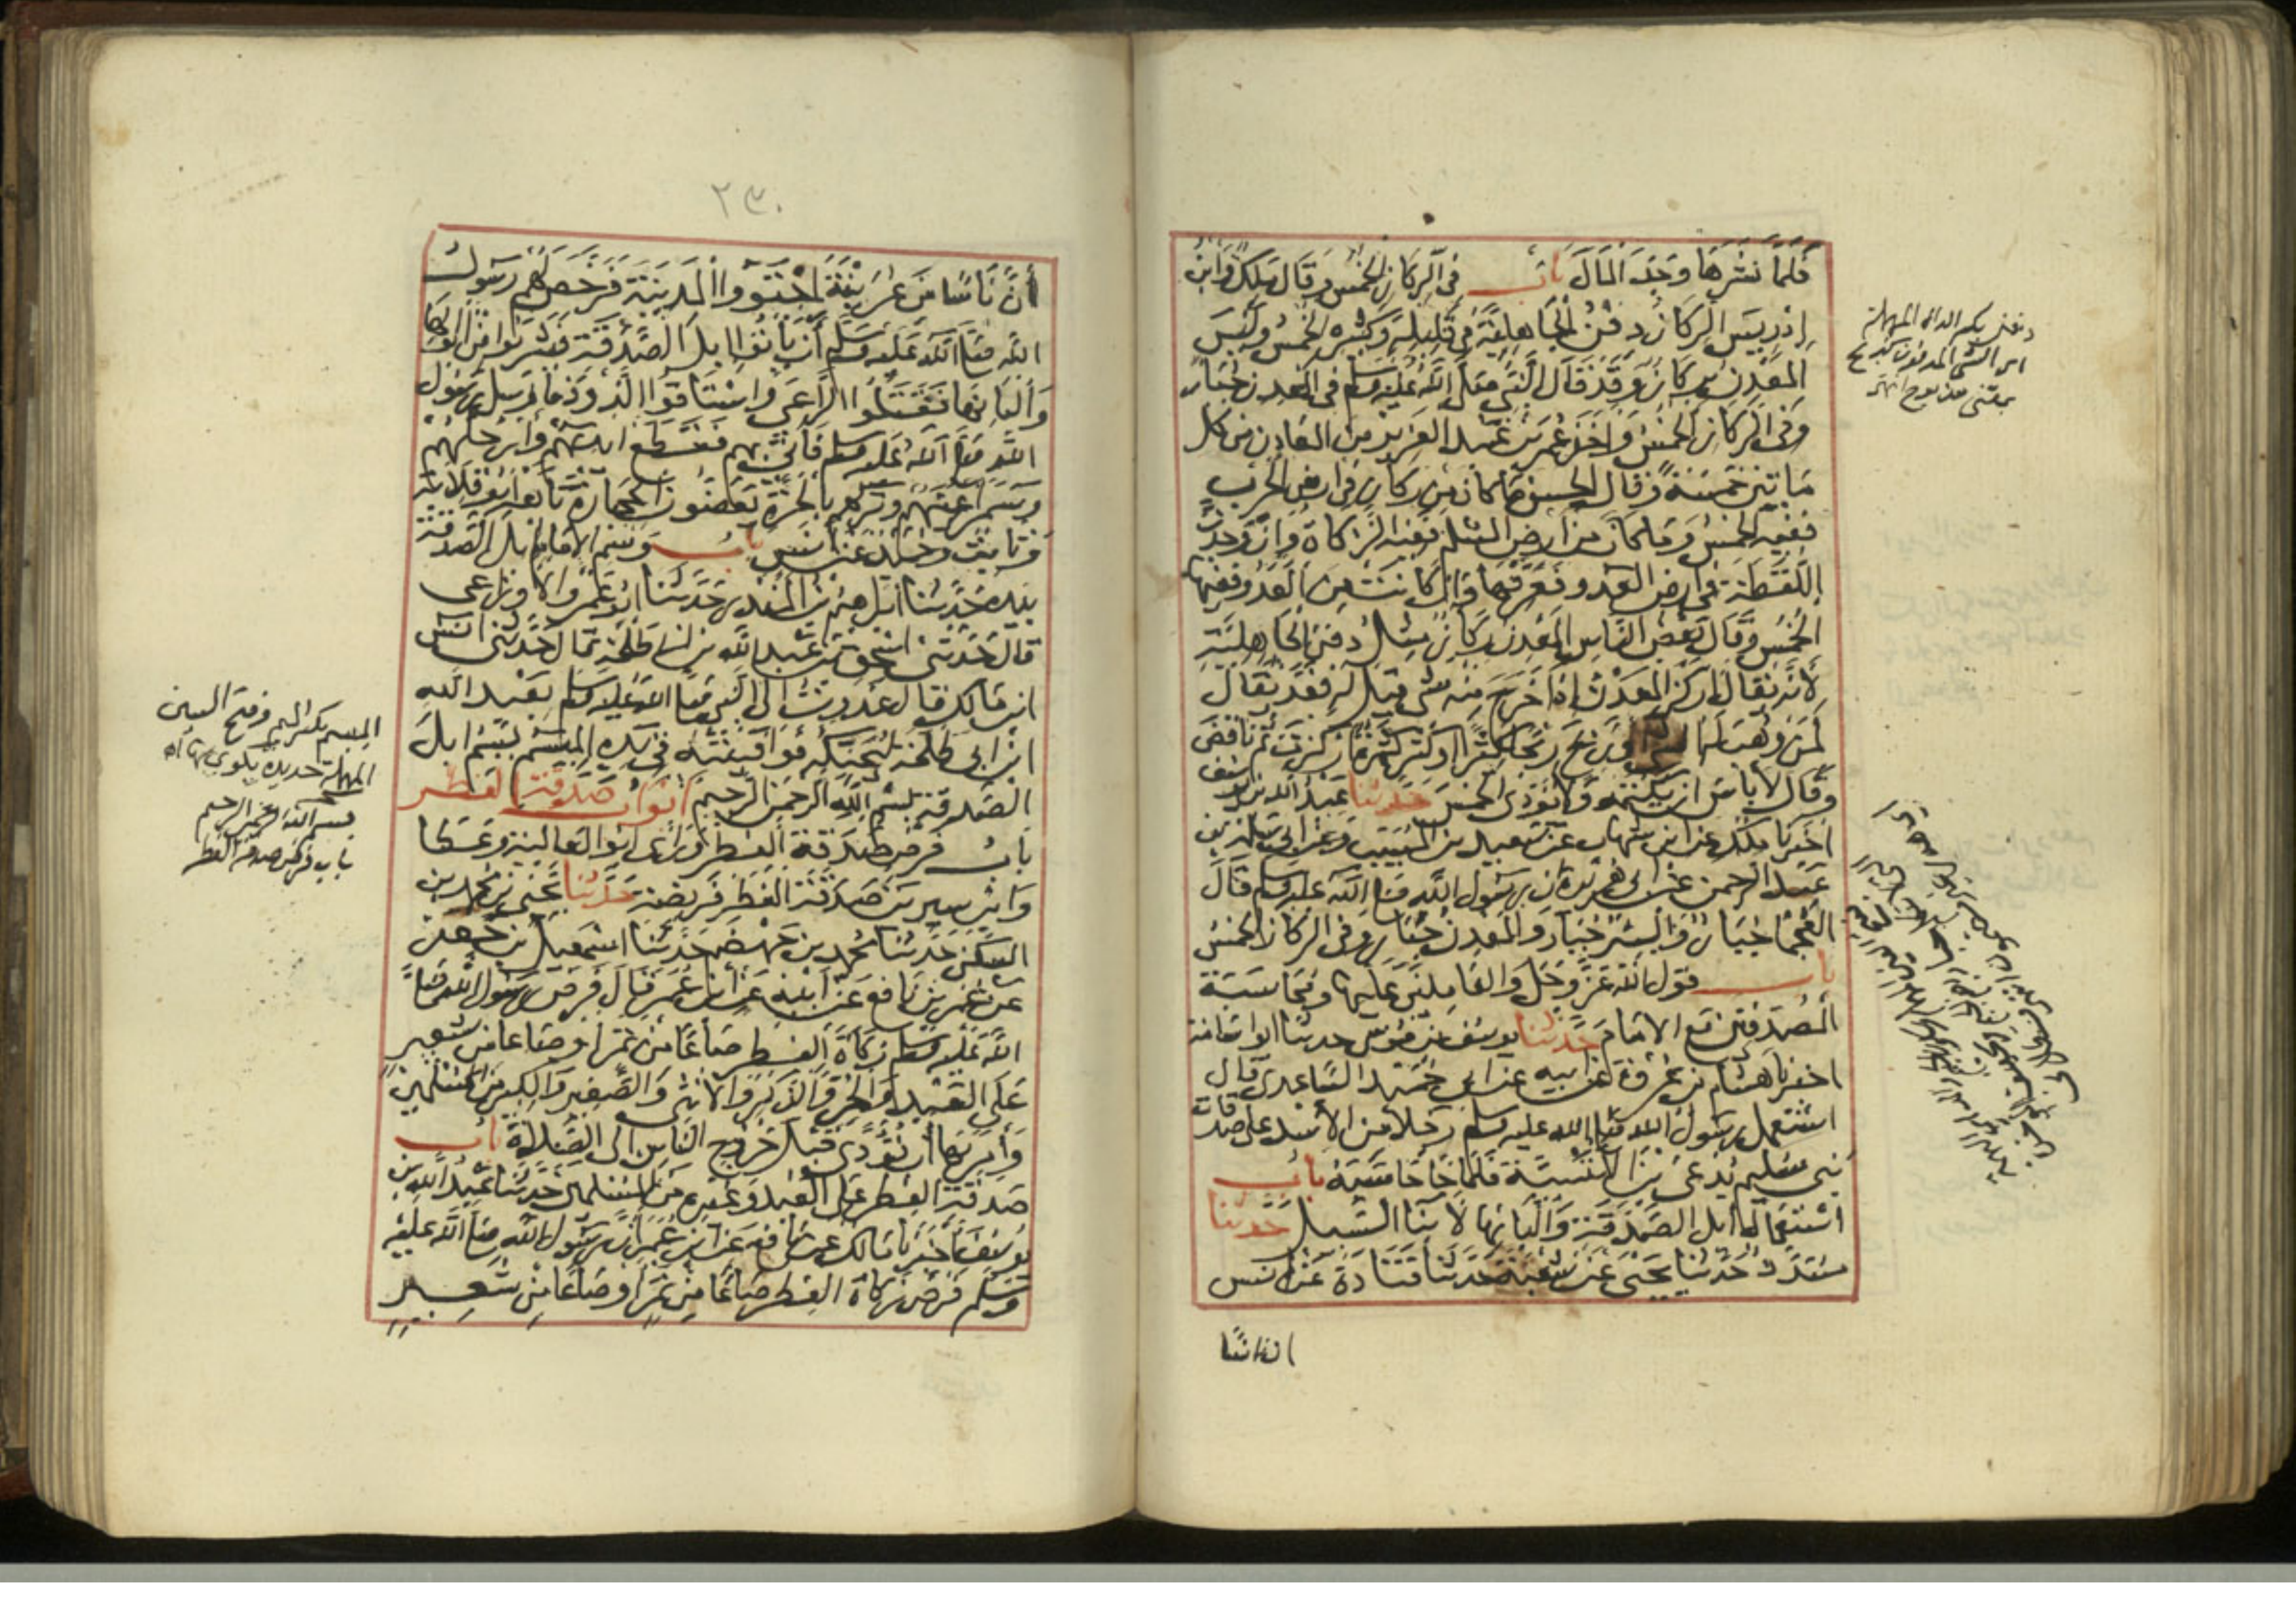 فلما نشرها وجد المال باب في الركاز الخمس وقال ملك وابن
إدريس الركاز دفن الجاهلية في قليله وكثيره الخمس وليس
المعدن بركاز وقد قال النبي صلى الله عليه وسلم في المعدن جبار
وفي الركاز الخمس وأخذ عمر بن عبد العزيز من المعادن من كل
مائتين خمسة وقال الحسن ما كان من ركاز في أرض الحرب
ففيه الخمس وما كان من أرض السلم ففيه الزكاة وان وجدت
اللقطة في أرض العدو فعرفها وان كانت من العدو ففيها
الخمس وقال بعض الناس المعدن ركاز مثل دفن الجاهلية
لأنه يقال اركز المعدن إذا خرج منه شي قيل له فقد يقال
لمن وهب له او ربح ربحا كثيرا او كثر ثمره اركزت ثم ناقض
وقال لا باس ان يكتمه ولا يؤدي الخمس حدثنا عبد الله بن يوسف
اخبرنا ملك عن ابن شهاب عن سعيد بن المسيب وعن ابي سلمة بن
عبد الرحمن عن ابي هريرة ان رسول الله صلى الله عليه وسلم قال
العجما جبار والبئر جبار والمعدن جبار وفي الركاز الخمس
باب قول الله عز وجل والعاملين عليها ومحاسبة
المصدقين مع الامام حدثنا يوسف بن موسى حدثنا ابو اسامة
اخبرنا هشام بن عروة عن ابيه عن ابي حميد الساعدي قال
استعمل رسول الله صلى الله عليه وسلم رجلا من الأسد على صدقات
بني سليم يدعى ابن اللتبية فلما جا حاسبه باب
استعمال ابل الصدقة والبانها لابنا السبيل حدثنا
مسدد حدثنا يحيى عن شعبة حدثنا قتادة عن انس
ان ناسا
٢٣٠
أن ناسا من عرينة اجتووا المدينة فرخص لهم رسول
الله صلى الله عليه وسلم أن يأتوا ابل الصدقة فيشربوا من ابوالها
وألبانها فقتلوا الراعي واستاقوا الذود فارسل رسول
الله صلى الله عليه وسلم فأتي بهم فقطع ايديهم وأرجلهم
وسمر اعينهم وتركهم بالحرة يعضون الحجارة تابعه ابو قلابة
وثابت وحميد عن أنس باب وسم الامام ابل الصدقة
بيده حدثنا ابراهيم بن المنذر حدثنا ابو عمرو الاوزاعي
قال حدثني اسحق بن عبد الله بن ابي طلحة قال حدثني انس
ابن مالك قال غدوت الى النبي صلى الله عليه وسلم بعبد الله
ابن ابي طلحة ليحنكه فوافيته في يده الميسم يسم ابل
الصدقة بسم الله الرحمن الرحيم أبواب صدقة الفطر
باب فرض صدقة الفطر ورأى ابو العالية وعطا
وابن سيرين صدقة الفطر فريضة حدثنا يحيى بن محمد بن
السكن حدثنا محمد بن جهضم حدثنا اسمعيل بن جعفر
عن عمر بن نافع عن أبيه عن ابن عمر قال فرض رسول الله صلى
الله عليه وسلم زكاة الفطر صاعا من تمر او صاعا من شعير
على العبد والحر والذكر والانثى والصغير والكبير من المسلمين
وأمر بها أن تؤدى قبل خروج الناس الى الصلاة باب
صدقة الفطر على العبد وغيره من المسلمين حدثنا عبد الله بن
يوسف اخبرنا مالك عن نافع عن ابن عمر ان رسول الله صلى الله عليه
وسلم فرض زكاة الفطر صاعا من تمر او صاعا من شعير
الميسم بكسر الميم وفتح السين
المهملة حديدة يكوى بها اه
بسم الله الرحمن الرحيم
باب فرض صدقة الفطر